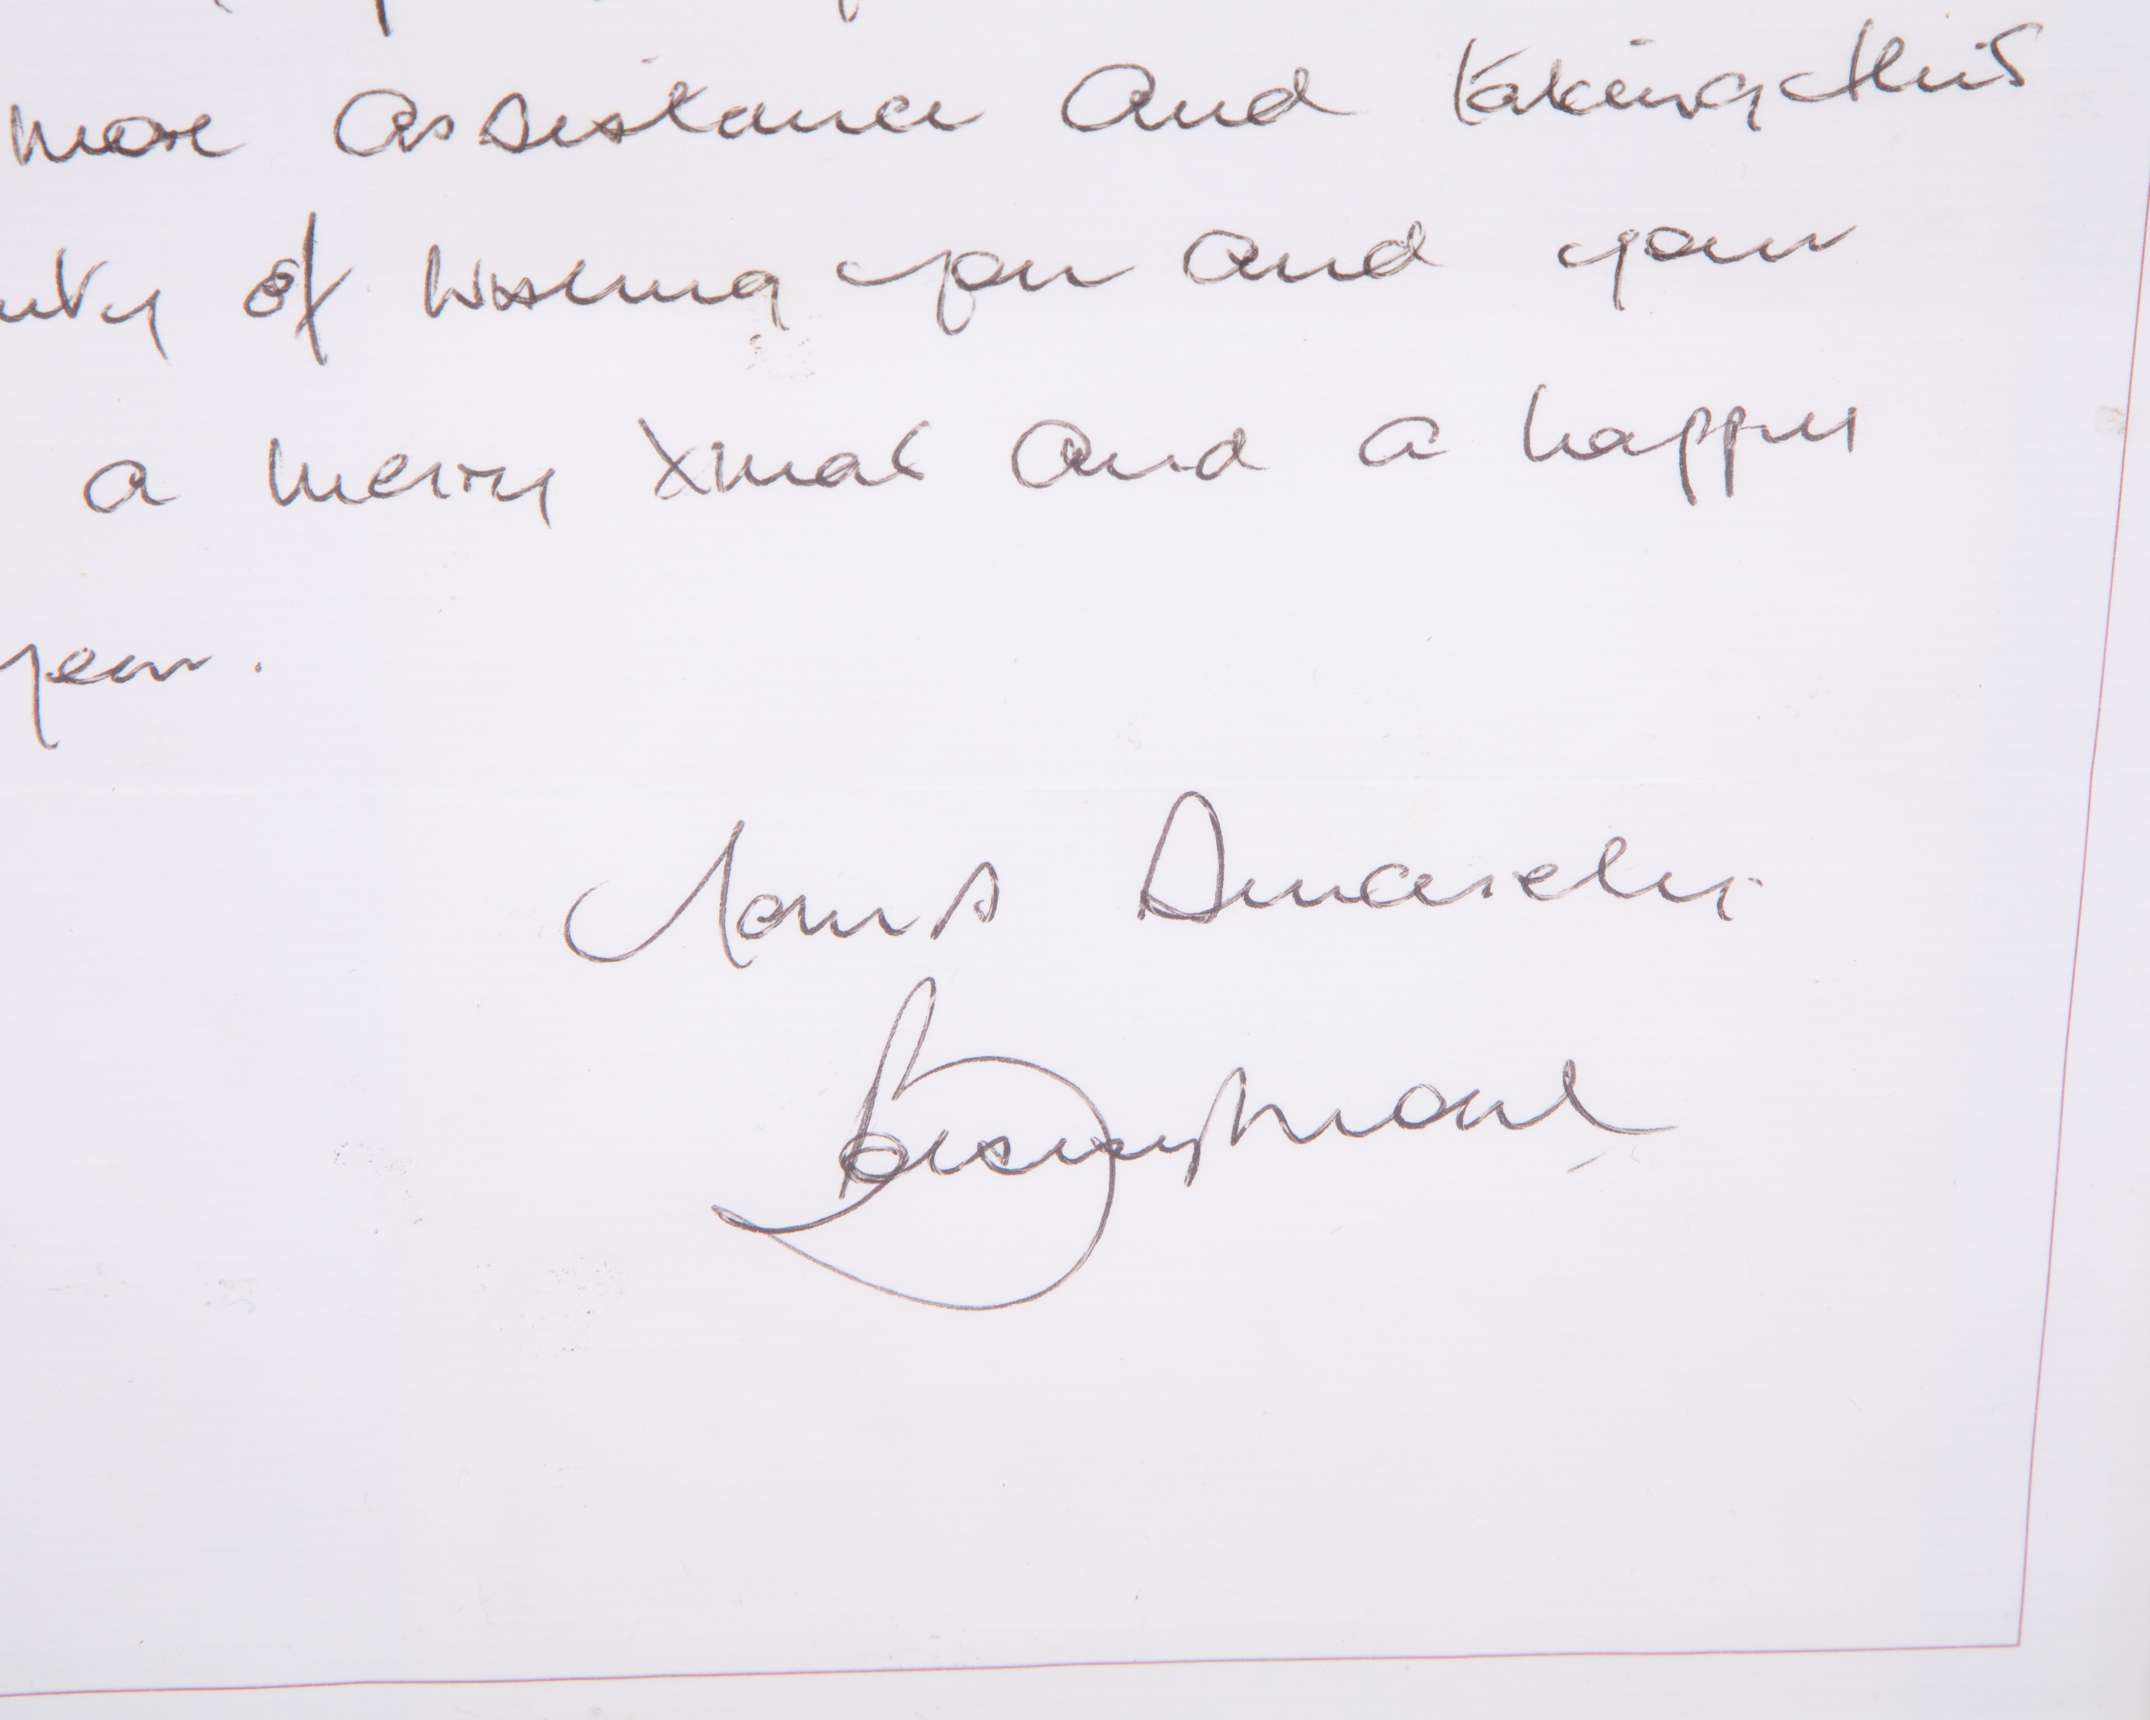 more assistance and taking this
of wishing you and your
a merry xmas and a happy
year.
Yours Sincerely